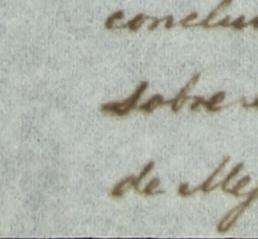 conclu
sobre
de Mej